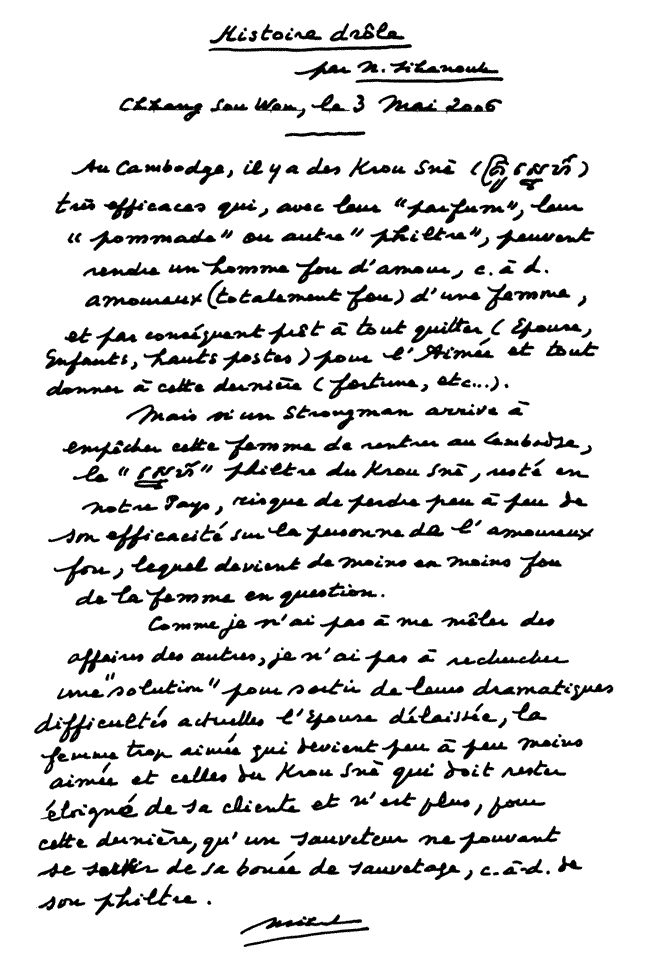 Histoire drôle
par N. Sihanouk
Chhang Sou Won, le 3 Mai 2006
Au Cambodge, il y a des Krou Snè (គ្រូស្នេហ៍)
très efficaces qui, avec leur "parfum", leur
"pommade" ou autre "philtre", peuvent
rendre un homme fou d'amour, c.à d.
amoureux (totalement fou) d'une femme,
et par conséquent prêt à tout quitter (Epouse,
Enfants, hauts postes) pour l'Aimée et tout
donner à cette dernière (fortune, etc...).
Mais si un Strongman arrive à
empêcher cette femme de rentrer au Cambodge,
le "ស្នេហ៍" philtre du Krou Snè, resté en
notre Pays, risque de perdre peu à peu de
son efficacité sur la personne de l'amoureux
fou, lequel devient de moins en moins fou
de la femme en question.
Comme je n'ai pas à me mêler des
affaires des autres, je n'ai pas à rechercher
une "solution" pour sortir de leurs dramatiques
difficultés actuelles l'Epouse délaissée, la
femme trop aimée qui devient peu à peu moins
aimée et celles du Krou Snè qui doit rester
éloigné de sa cliente et n'est plus, pour
cette dernière, qu'un sauveteur ne pouvant
se servir de sa bouée de sauvetage, c.à-d. de
son philtre.